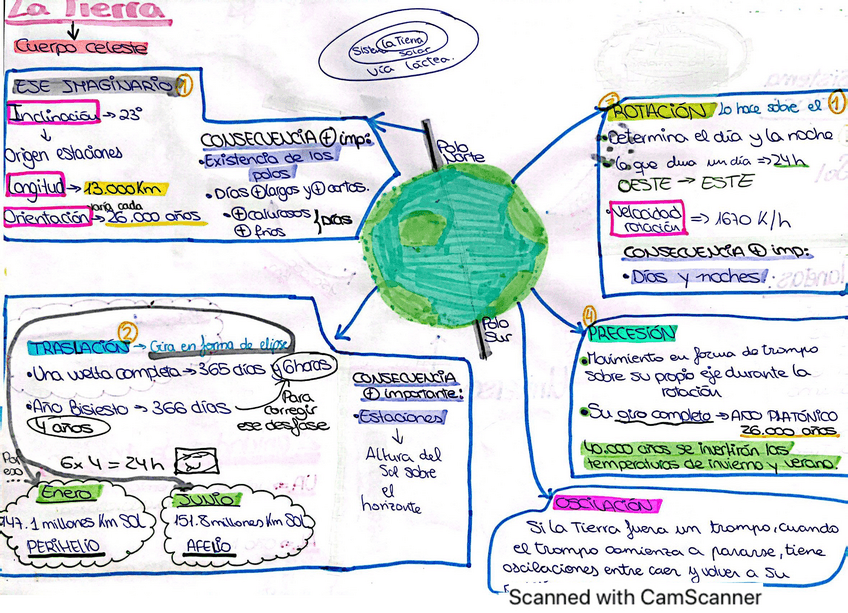 La Tierra
Cuerpo celeste
Sistema
La Tierra
solar
Vía láctea.
EJE IMAGINARIO 1
Inclinación → 23°
Origen estaciones
Longitud → 13.000Km
varía cada
Orientación → 26.000 años
CONSECUENCIA + imp:
• Existencia de los
polos
• Días + largos y + cortos.
• + calurosos
+ fríos } Días
Polo
Norte
Polo
Sur
3
ROTACIÓN Lo hace sobre el 1
• Determina el día y la noche
• Lo que dura un día → 24h
OESTE → ESTE
• Velocidad
rotación ⇒ 1670 K/h
CONSECUENCIA + imp:
• Días y noches.
2
TRASLACIÓN → Gira en forma de elipse
• Una vuelta completa → 365 días y 6horas
• Año Bisiesto → 366 días
4 años
Para
corregir
ese desfase
Por
eso
6x4 = 24h
Enero
147.1 millones Km SOL
PERIHELIO
JULIO
151.8 millones Km SOL
AFELIO
CONSECUENCIA
+ importante:
• Estaciones
Altura del
Sol sobre
el
horizonte
4
PRECESIÓN
• Movimiento en forma de trompo
sobre su propio eje durante la
rotación
• Su giro completo → AÑO PLATÓNICO
26.000 años
40.000 años se invertirán las
temperaturas de invierno y verano.
OSCILACIÓN
Si La Tierra fuera un trompo, cuando
el trompo comienza a pararse, tiene
oscilaciones entre caer y volver a su
Scanned with CamScanner